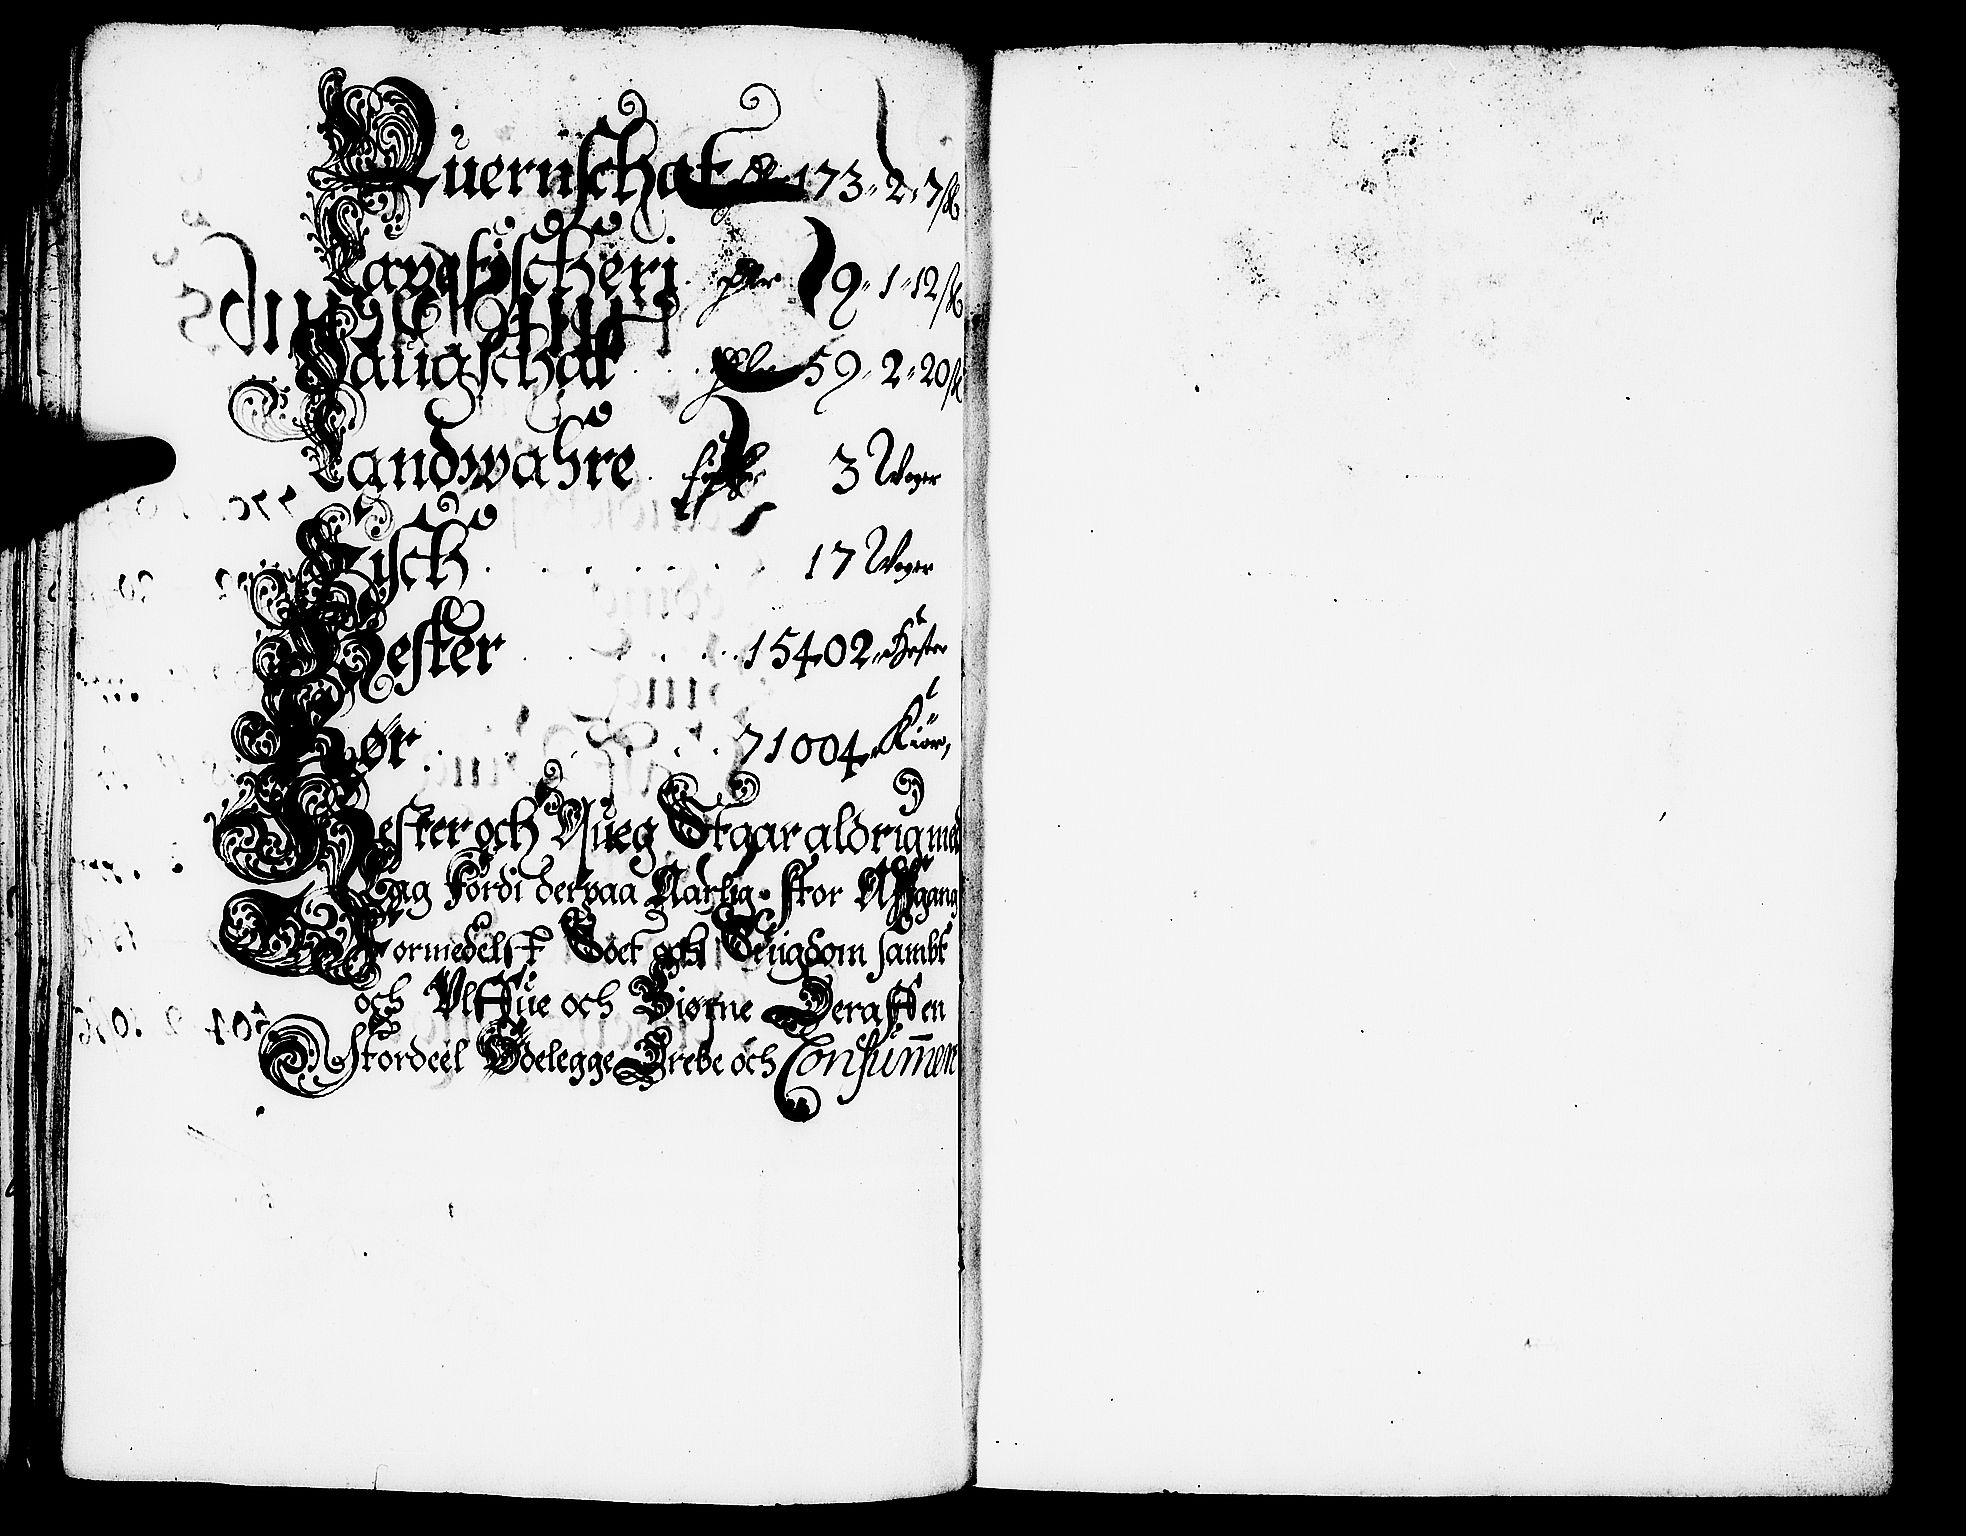 Quernschat 173 - 2 - 7 ß
Laxefischeri 9 - 1 - 12 ß
Laugschat 59 - 2 - 20 ß
Landwahre 3 Woger
Fisch . . . . . . 17 Woger
Hester . . . . 15402 Hester
Kør . . . . . 71004 Kiør,
Hester och Queg Staar aldrig med
Lag Fordi derpaa Aarlig Stor Affgang
Formedelst Soet och Siugdom sambt
och Ulffue och Biørne Deraff en
Stordeel Ødelegge Drebe och Consummer